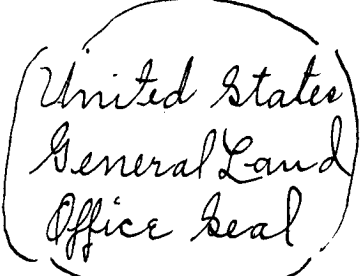 United States
General Land
Office Seal